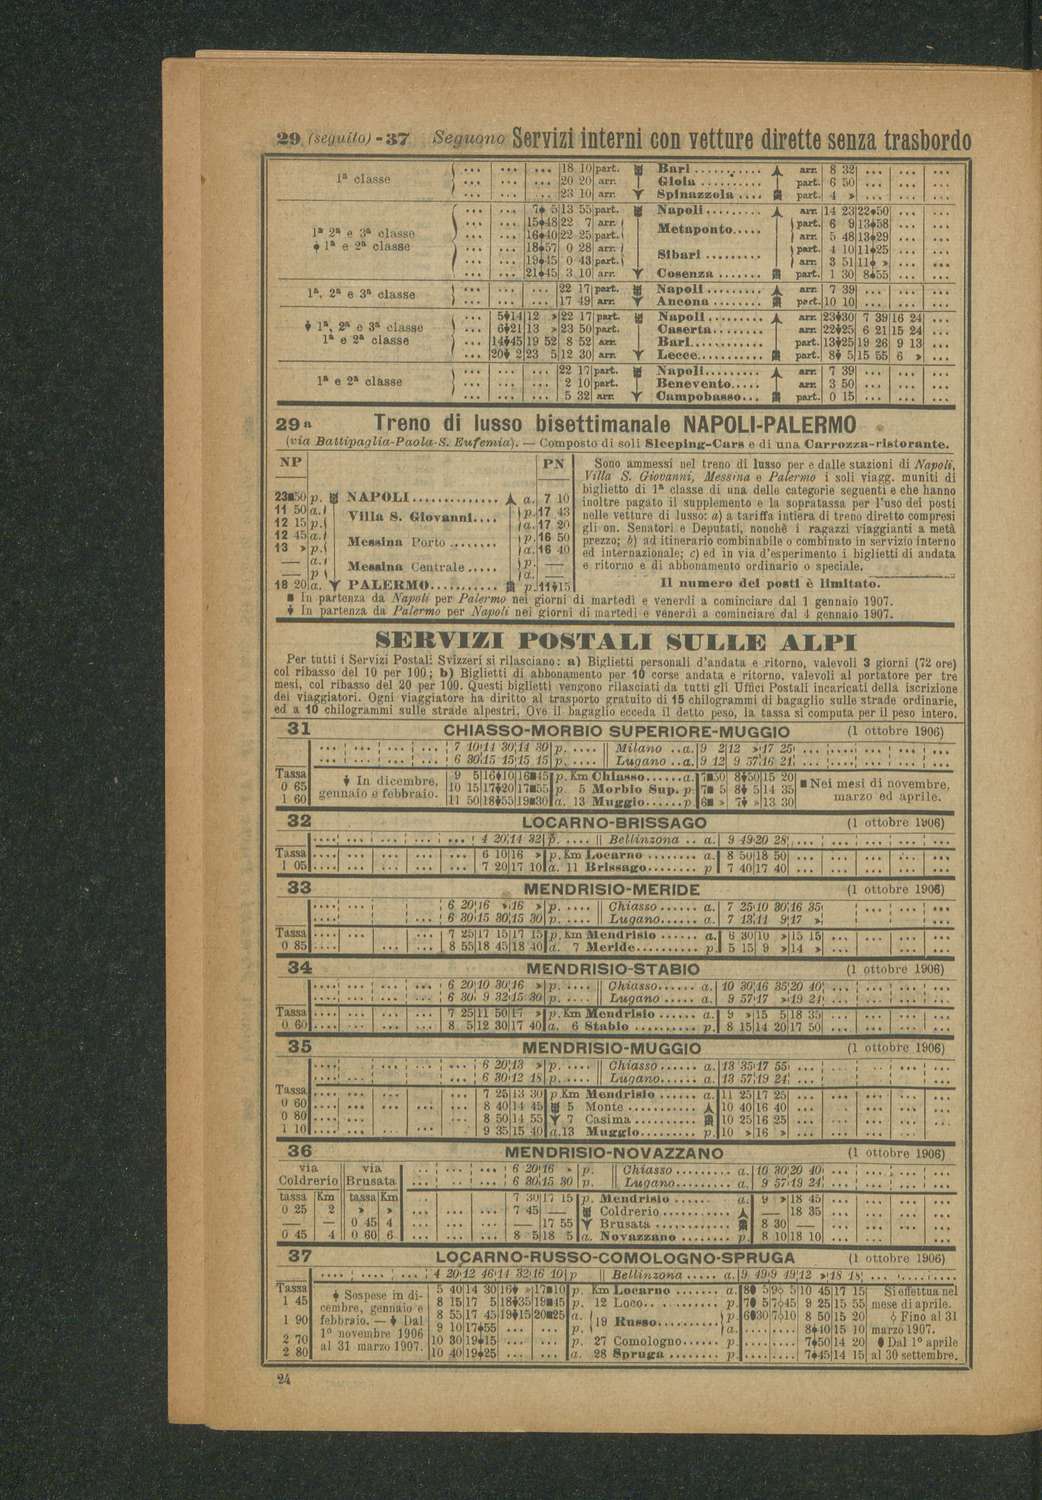 29 (seguito) - 37 Seguono Servizi interni con vetture dirette senza trasbordo
1ª classe ... ... ... 18 10 part. Bari arr. 8 32 ... ... ...
... ... ... 20 20 arr. Gioia part. 6 50 ... ... ...
... ... ... 23 10 arr. Spinazzola part. 4 » ... ... ...
... ... 7 5 13 55 part. Napoli arr. 14 23 22 50 ... ...
1ª 2ª e 3ª classe ... ... 15 48 22 7 arr. Metaponto part. 6 9 13 58 ... ...
1ª e 2ª classe ... ... 16 40 22 25 part. arr. 5 48 13 29 ... ...
... ... 18 57 0 28 arr. Sibari part. 4 10 11 25 ... ...
... ... 19 45 0 43 part. arr. 3 51 11 » ... ...
... ... 21 45 3 10 arr. Cosenza part. 1 30 8 55 ... ...
1ª, 2ª e 3ª classe ... ... ... 22 17 part. Napoli arr. 7 39 ... ... ...
... ... ... 17 49 arr. Ancona part. 10 10 ... ... ...
... 5 14 12 » 22 17 part. Napoli arr. 23 30 7 39 16 24 ...
1ª, 2ª e 3ª classe ... 6 21 13 » 23 50 part. Caserta arr. 22 25 6 21 15 24 ...
1ª e 2ª classe ... 14 45 19 52 8 52 arr. Bari part. 13 25 19 26 9 13 ...
... 20 2 23 5 12 30 arr. Lecce part. 8 5 15 55 6 » ...
... ... ... 22 17 part. Napoli arr. 7 39 ... ... ...
1ª e 2ª classe ... ... ... 2 10 part. Benevento arr. 3 50 ... ... ...
... ... ... 5 32 arr. Campobasso part. 0 15 ... ... ...
29a Treno di lusso bisettimanale NAPOLI-PALERMO
(via Battipaglia-Paola-S. Eufemia). — Composto di soli Sleeping-Cars e di una Carrozza-ristorante.
NP PN
23■50 p. NAPOLI a. 7 10
11 50 a. Villa S. Giovanni p. 17 43
12 15 p. a. 17 20
12 45 a. Messina Porto p. 16 50
13 » p. a. 16 40
— a. Messina Centrale p. —
— p. a. —
18 20 a. PALERMO p. 11 15
Sono ammessi nel treno di lusso per e dalle stazioni di Napoli,
Villa S. Giovanni, Messina e Palermo i soli viagg. muniti di
biglietto di 1ª classe di una delle categorie seguenti e che hanno
inoltre pagato il supplemento e la sopratassa per l'uso dei posti
nelle vetture di lusso: a) a tariffa intiera di treno diretto compresi
gli on. Senatori e Deputati, nonchè i ragazzi viaggianti a metà
prezzo; b) ad itinerario combinabile o combinato in servizio interno
ed internazionale; c) ed in via d'esperimento i biglietti di andata
e ritorno e di abbonamento ordinario o speciale.
Il numero dei posti è limitato.
■ In partenza da Napoli per Palermo nei giorni di martedì e venerdì a cominciare dal 1 gennaio 1907.
In partenza da Palermo per Napoli nei giorni di martedì e venerdì a cominciare dal 4 gennaio 1907.
SERVIZI POSTALI SULLE ALPI
Per tutti i Servizi Postali Svizzeri si rilasciano: a) Biglietti personali d'andata e ritorno, valevoli 3 giorni (72 ore)
col ribasso del 10 per 100; b) Biglietti di abbonamento per 10 corse andata e ritorno, valevoli al portatore per tre
mesi, col ribasso del 20 per 100. Questi biglietti vengono rilasciati da tutti gli Uffici Postali incaricati della iscrizione
dei viaggiatori. Ogni viaggiatore ha diritto al trasporto gratuito di 15 chilogrammi di bagaglio sulle strade ordinarie,
ed a 10 chilogrammi sulle strade alpestri. Ove il bagaglio ecceda il detto peso, la tassa si computa per il peso intero.
31 CHIASSO-MORBIO SUPERIORE-MUGGIO (1 ottobre 1906)
... ... ... ... 7 10 11 30 14 30 p. Milano a. 9 2 12 » 17 25 ... ... ... ...
... ... ... ... 6 30 15 15 15 15 p. Lugano a. 9 12 9 57 16 21 ... ... ... ...
Tassa In dicembre, 9 5 16 10 16■45 p. Km Chiasso a. 7■50 8 50 15 20 ■ Nei mesi di novembre,
0 65 gennaio e febbraio. 10 15 17 20 17■55 p. 5 Morbio Sup. p. 7■5 8 5 14 35 marzo ed aprile.
1 60 11 50 18 55 19■30 a. 13 Muggio p. 6■» 7 » 13 30
32 LOCARNO-BRISSAGO (1 ottobre 1906)
... ... ... ... ... 4 20 14 32 p. Bellinzona a. 9 49 20 28 ... ... ... ... ...
Tassa ... ... ... ... ... 6 10 16 » p. Km Locarno a. 8 50 18 50 ... ... ... ... ...
1 05 ... ... ... ... ... 7 20 17 10 a. 11 Brissago p. 7 40 17 40 ... ... ... ... ...
33 MENDRISIO-MERIDE (1 ottobre 1906)
... ... 6 20 16 » 16 » p. Chiasso a. 7 25 10 30 16 35 ... ... ...
... ... 6 30 15 30 15 30 p. Lugano a. 7 13 11 9 17 » ... ... ...
Tassa ... ... ... ... 7 25 17 15 17 15 p. Km Mendrisio a. 6 30 10 » 15 15 ... ... ... ...
0 85 ... ... ... ... 8 55 18 45 18 40 a. 7 Meride p. 5 15 9 » 14 » ... ... ... ...
34 MENDRISIO-STABIO (1 ottobre 1906)
... ... ... ... 6 20 10 30 16 » p. Chiasso a. 10 30 16 35 20 40 ... ... ... ...
... ... ... ... 6 30 9 32 15 30 p. Lugano a. 9 57 17 » 19 21 ... ... ... ...
Tassa ... ... ... ... 7 25 11 50 17 » p. Km Mendrisio a. 9 » 15 5 18 35 ... ... ... ...
0 60 ... ... ... ... 8 5 12 30 17 40 a. 6 Stabio p. 8 15 14 20 17 50 ... ... ... ...
35 MENDRISIO-MUGGIO (1 ottobre 1906)
... ... ... ... ... 6 20 13 » p. Chiasso a. 13 35 17 55 ... ... ...
... ... ... ... ... 6 30 12 18 p. Lugano a. 13 57 19 21 ... ... ... ... ...
Tassa ... ... ... ... 7 25 13 30 p. Km Mendrisio a. 11 25 17 25 ... ... ... ... ...
0 60 ... ... ... ... 8 40 14 45 5 Monte 10 40 16 40 ... ... ... ... ...
0 80 ... ... ... ... 8 50 14 55 7 Casima 10 25 16 25 ... ... ... ... ...
1 10 ... ... ... ... 9 35 15 40 a. 13 Muggio p. 10 » 16 » ... ... ... ... ...
36 MENDRISIO-NOVAZZANO (1 ottobre 1906)
via via ... ... ... 6 20 16 » p. Chiasso a. 10 30 20 40 ... ... ... ... ...
Coldrerio Brusata ... ... ... 6 30 15 30 p. Lugano a. 9 57 19 24 ... ... ... ... ...
tassa Km tassa Km ... 7 30 17 15 p. Mendrisio a. 9 » 18 45 ... ... ... ... ...
0 25 2 » » ... ... ... 7 45 — Coldrerio — 18 35 ... ... ... ... ...
— — 0 45 4 ... ... ... — 17 55 Brusata 8 30 — ... ... ... ... ...
0 45 4 0 60 6 ... ... ... 8 5 18 5 a. Novazzano p. 8 10 18 10 ... ... ... ... ...
37 LOCARNO-RUSSO-COMOLOGNO-SPRUGA (1 ottobre 1906)
... ... ... 4 20 12 46 14 32 16 10 p Bellinzona a. 9 49 9 49 12 » 18 18 ... ...
Tassa Sospese in di- 5 40 14 30 16 » 17■10 p. Km Locarno a. 8 5 9 5 10 45 17 15 Si effettua nel
1 45 cembre, gennaio e 8 15 17 5 18 35 19■45 p. 12 Loco p. 7 5 7 45 9 25 15 55 mese di aprile.
1 90 febbraio. — Dal 8 55 17 45 19 15 20■25 a. 19 Russo p. 6 30 7 10 8 50 15 20 Fino al 31
1º novembre 1906 9 10 17 55 ... ... p. a. ... ... 8 40 15 10 marzo 1907.
2 70 al 31 marzo 1907. 10 30 19 15 ... ... p. 27 Comologno p. ... ... 7 50 14 20 Dal 1º aprile
2 80 10 40 19 25 ... ... a. 28 Spruga p. ... ... 7 45 14 15 al 30 settembre.
24